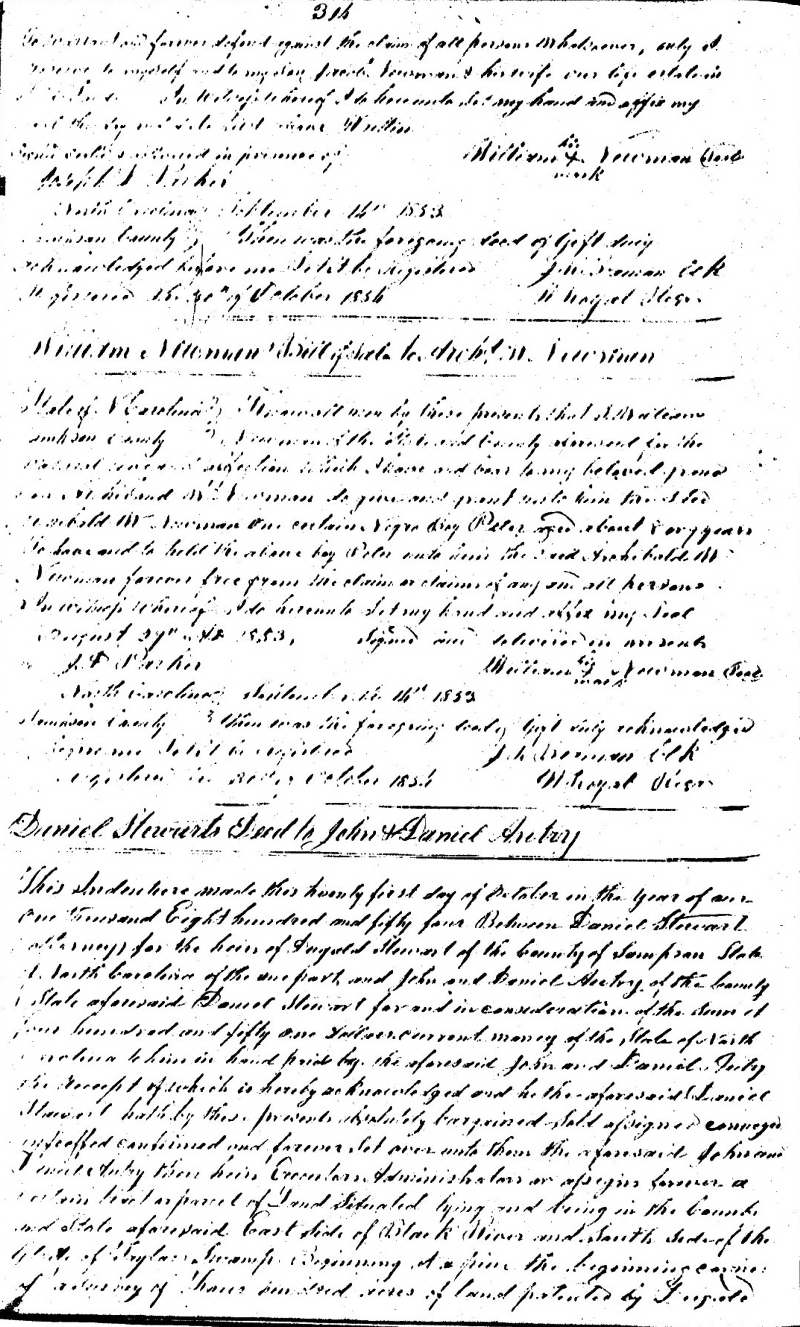 314
forever defend against the claim of all persons whatsoever, only I
reserve to myself and to my son Jacob Newman & his wife our life estate in
In Witness whereof I do hereunto set my hand and affix my
seal the day and date first above Written
in presence of William his X mark Newman Seal
Joseph
North Carolina September 14th 1853
Sampson County Then was the foregoing deed of Gift duly
acknowledged before me Let it be Registered Clk
Registered the of October 1854 Royal Regr
William Newman's Bill of Sale to Archd. M Newman
State of N Carolina Know all men by these presents that I William
Sampson County Newman of the State and County aforesaid for the
natural love and affection which I have and bear to my beloved grand
son Archibald Mc Newman do give and grant unto him the said
Archibald Mc Newman One certain Negro Boy Peter aged about 8 or 9 years
To have and to hold the above boy Peter unto him the said Archibald Mc
Newman forever free from the claim or claims of any and all persons
In witness whereof I do hereunto Set my hand and affix my Seal
August 29th AD 1853. Signed and delivered in presents
William his X mark Newman Seal
North Carolina September the 14th 1853
Sampson County Then was the foregoing deed of Gift duly acknowledged
before me Let it be registered Clk
Registered October 1854 Royal Regr
Daniel Stewarts Deed to John & Daniel Autry
This Indenture made this twenty first day of October in the year of our
One thousand Eight hundred and fifty four Between Daniel Stewart
attorney for the heirs of Dugald Stewart of the County of Sampson State
of North Carolina of the one part, and John and Daniel Autry of the County
& State aforesaid Daniel Stewart for and in consideration of the Sum of
four hundred and fifty one dollars current money of the State of North
Carolina to him in hand paid by the aforesaid John and Daniel Autry
the Receipt of which is hereby acknowledged and he the aforesaid Daniel
Stewart hath by these presents absolutely bargained Sold assigned conveyed
enfeoffed confirmed and forever set over unto them the aforesaid John and
Daniel Autry their heirs Executors Administrators or assigns forever a
certain tract or parcel of Land Situated lying and being in the County
and State aforesaid East Side of Black River and South side of the
of Swamp Beginning at a pine the beginning corner
of a Survey of hundred acres of land patented by Dugald